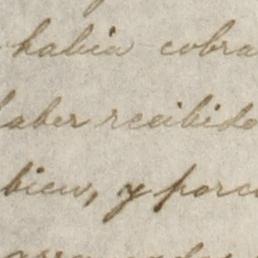 habia cobra
haber recibido
bien, y porc